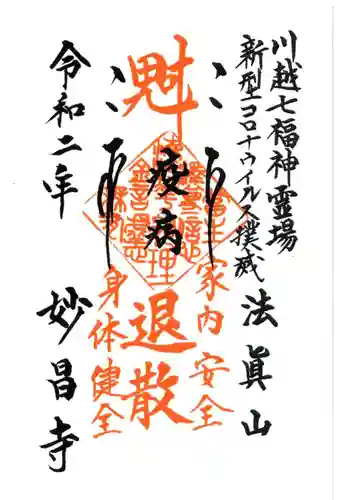 川越七福神霊場
新型コロナウイルス撲滅
法眞山
家内安全
魁
疫病
退散
身体健全
令和二年
妙昌寺